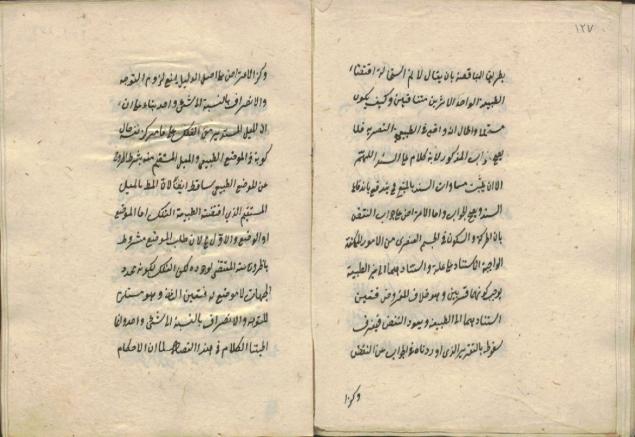 ١٢٧
بطريق المناقضة بان يقال لا نم استحالة اقتضاء
الطبيعة الواحدة الامرين متنافيين وكيف يكون
مستحيلا والحال انه واقع في الطبيعي العنصرية فلا
يصح جواب المذكور لانه كلام على السند اللهم
الا ان يثبت مساوات السند بالمنع فيندفع باندفاع
السند ويصح الجواب واما الاعتراض على جواب النقض
بان الحركة والسكون في الجسم العنصري من الامور الممكنة
الواجبة الاستناد الى علة واستنادهما الى غير الطبيعة
يوجب كونهما قسريين وهو خلاف المفروض فتعين
استنادهما الى الطبيعة ويعود النقض فيعرف
سقوطه بالتقرير الذي اوردناه في الجواب عن النقض
وكذا
وكذا الاعتراض على اصل الدليل بمنع لزوم التوجه
والانصراف بالنسبة الى شئ واحد بناء على ان
ان الميل المستدير من الفلك على حال
كونه في الموضع الطبيعي والميل المستقيم منه بشرط الخروج
عن الموضع الطبيعي ساقط ايضا لان المط بالميل
المستقيم الذي اقتضته الطبيعة الفلك اما الموضع
او الوضع والاول بط لان طلب الموضع مشروط
بالخروج عنه المقتضى لوجوده لكن الفلك لكونه محدد
الجهات لا موضع له فتعين الثاني وهو مستلزم
للتوجه والانصراف بالنسبة الى شئ واحد وان
الكلام في هذا لما ان الاحكام